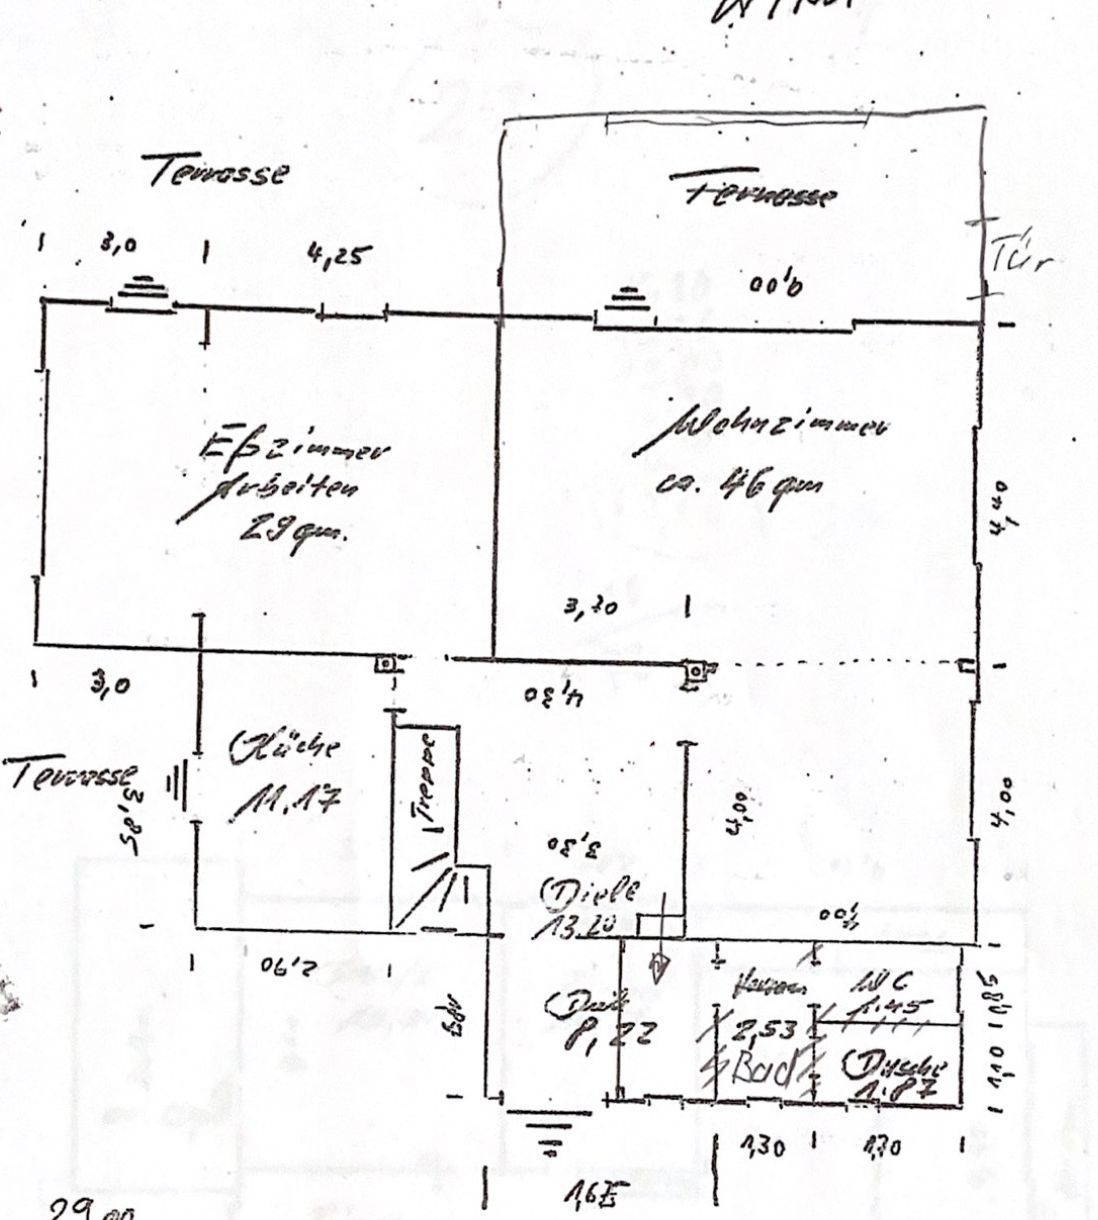 Terrasse
Terrasse
3,0
4,25
Tür
Eßzimmer
Arbeiten
29 qm.
Wohnzimmer
ca. 46 qm
4,40
3,70
3,0
4,30
Terrasse
3,85
Küche
11.17
Treppe
4,00
4,00
3,30
Diele
13.20
4,00
2,90
Diele
8,22
2,53
Bad
WC
1.45
0,85
Dusche
1.87
1,10
1,30
1,70
29,00